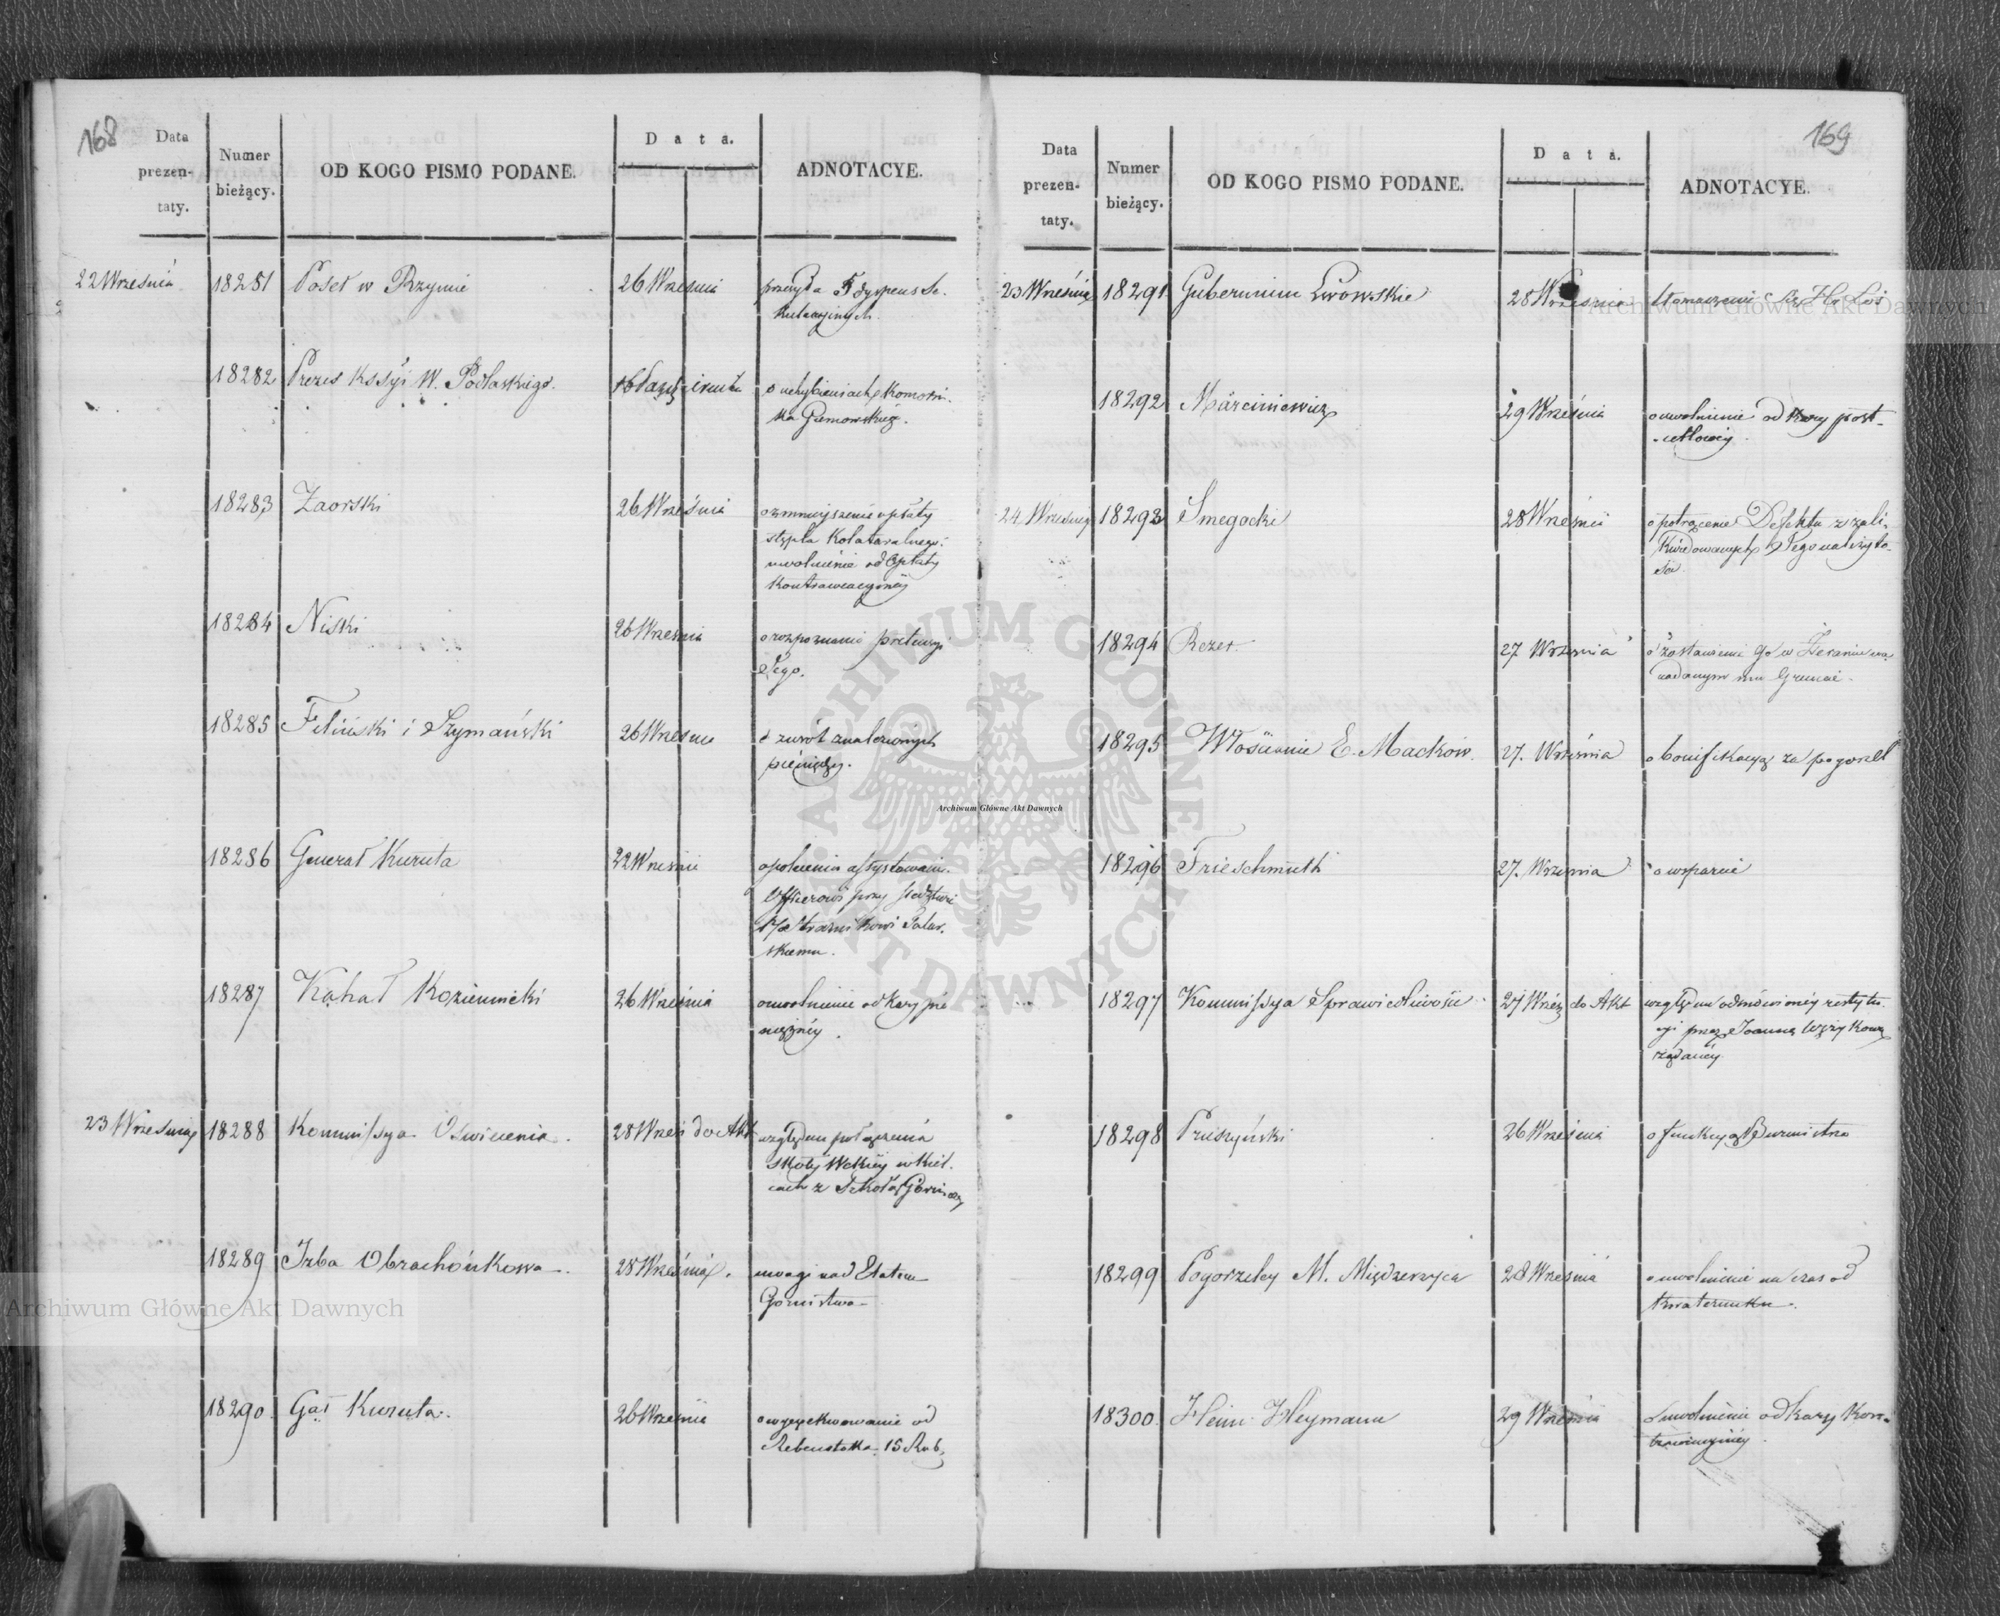 168
Data prezen- taty.
Numer bieżący.
OD KOGO PISMO PODANE.
Data.
ADNOTACYE.
22 Wrzesnia 18281 Poseł w Rzymie 26 Wrzesnia przesyła 5 dyspens Se-
kularyinych.
18282 Prezes Kssyi W. Podlaskiego. 16 Pazdziernika o uchybieniach Komorni-
ka
18283 Zaorski 26 Wrzesnia o zmnieyszenie opłaty
stępla Kolateralnego i
uwolnienie od opłaty
Kontrawencyinéy
18284 Niski 26 Wrzesnia o rozpoznanie pretensyi
Jego.
18285 Feliński i Szymański 26 Wrzesnia o zwrót znalezionych
pieniędzy.
18286 Generał Kuruta 22 Wrzesnia o polecenia assystowania
Officerowi przy śledztwie
18287 Kahał Kozienicki 26 Wrzesnia o uwolnienie od Kary pie-
niężnéy.
23 Wrzesnia 18288 Kommissya Oświecenia. 28 Wrześ do Akt względem połączenia
Szkoły Wckiéy w Kiel-
cach z Szkołą Górniczą
18289 Izba Obrachónkowa. 28 Wrzesnia. uwagi nad Etatem
Górnictwa
18290 Gał Kuruta. 26 Wrzesnia o wyexekwowanie od
Rebenstoka 15 Rub.
169
Data prezen- taty.
Numer bieżący.
OD KOGO PISMO PODANE.
Data.
ADNOTACYE.
23 Wrzesnia 18291 Gubernium Lwowskie 28 Wrzesnia
18292 Marciniewicz 29 Wrzesnia o uwolnienie od Kary post-
18293 Smegocki 28 Wrzesnia o potrącenie Defektu z zali-
kwidowanych Jego należyto-
ści
18294 Rezer 27 Wrzesnia o zostawienie go w Żeraniu na
nadanym mu Gruncie.
18295 Włościanie E. Macków. 27. Wrzesnia o bonifikacyą za pogorzel
18296 Frieschmuth 27. Wrzesnia o wsparcie
18297 Kommissya Sprawiedliwości 27 Wrześ do Akt względem odmówionéy restytu-
cyi przez Joannę Wężykową
żądanéy.
18298 Pruszyński 26 Wrzesnia o funkcyą Burmistrza
18299 Pogorzelcy M. Międzerzyca 28 Wrzesnia o uwolnienie na czas od
Kwaterunku.
18300. Heim Heymann 29 Wrzesnia o uwolnienie od Kary Kon-
trawencyinéy
ARCHIWUM GŁÓWNE AKT DAWNYCH
Archiwum Główne Akt Dawnych
Archiwum Główne Akt Dawnych
Archiwum Główne Akt Dawnych